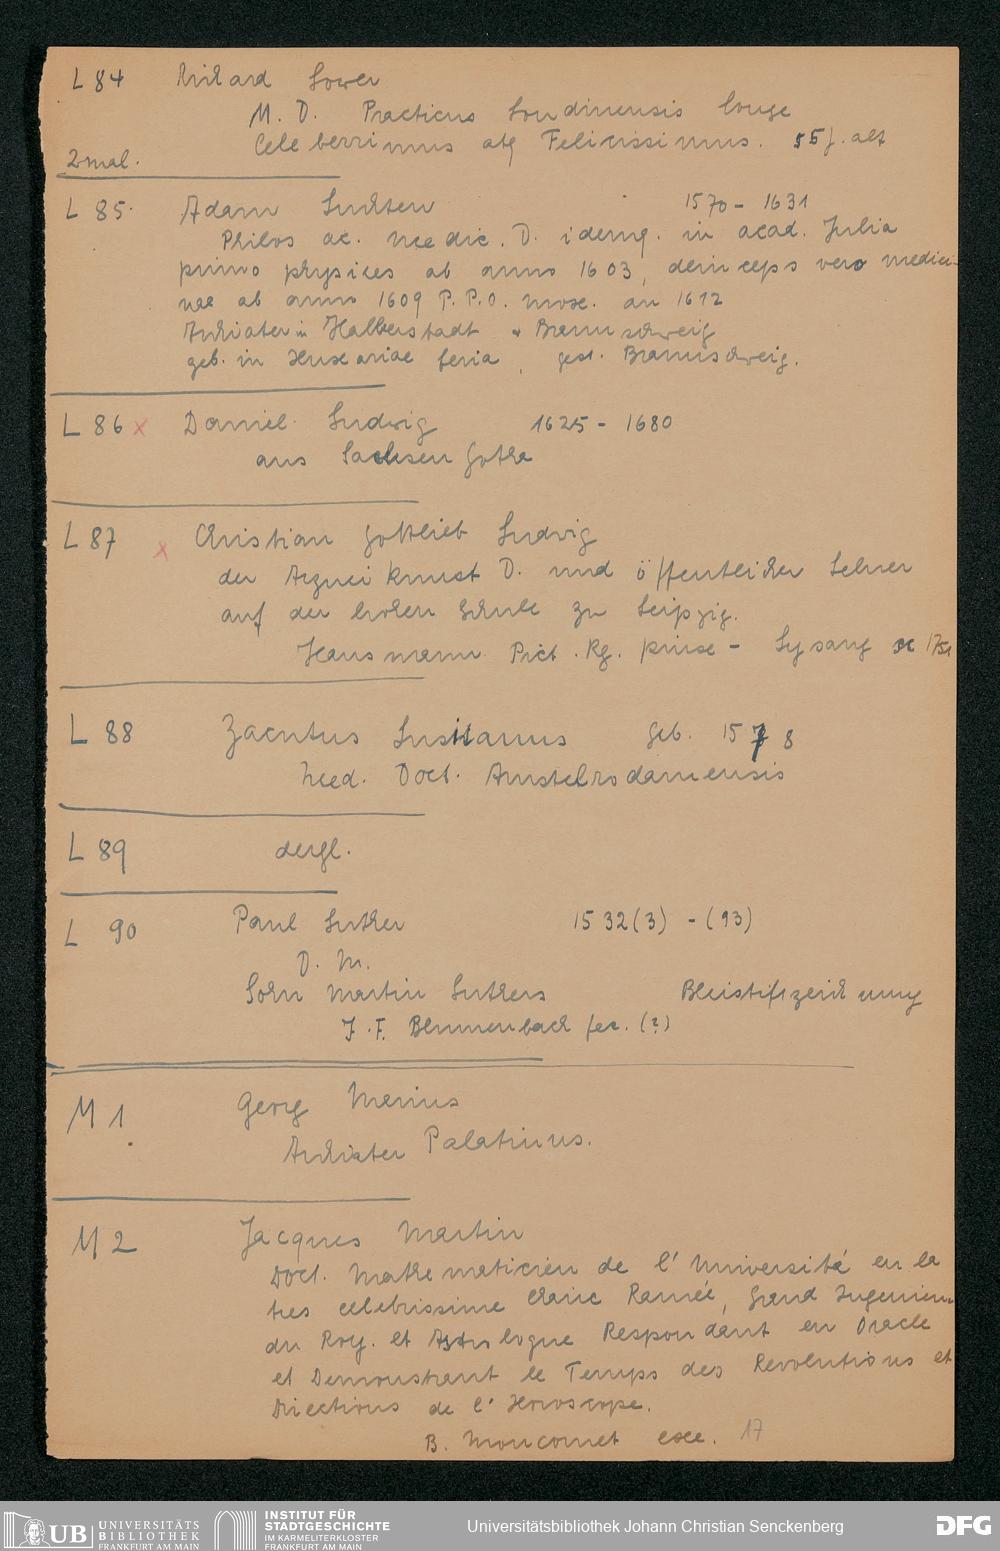 L 84 Richard Lower
M. D. Practicus Londinensis longe
Celeberrimus atq Felicissimus. 55 j. alt
2 mal.
L 85. Adam Luchten 1570 - 1631
Philos ac. medic. D. idemq. in acad. Julia
primo physices ab anno 1603, deinceps vero medici-
nae ab anno 1609 P. P. O. an 1612
Archiater in Halberstadt + Braunschweig
geb. in , gest. Braunschweig.
L 86 x Daniel Ludwig 1625 - 1680
aus Sachsen Gotha
L 87 x Christian Gottlieb Ludwig
der Arznei kunst D. und öffentlicher Lehrer
auf der hohen Schule zu Leipzig.
Hausmann Pict. Rg. pinx - Sysang sc 1751
L 88 Zacutus Lusitanus geb. 1578
Med. Doct. Amstelrodamensis
L 89 dergl.
L 90 Paul Luther 1532(3) - (93)
D. M.
Sohn Martin Luthers Bleistiftzeichnung
J. F. Blumenbach fec. (?)
M 1 Georg Marius
Archiater Palatinus.
M 2 Jacques Martin
Doct. Mathematicien de l' Université en la
tres celebrissime Ramée, Grand Ingenieur
du Roy. et Astrologue Respondant en Oracle
et Demonstrant le Temps des Revolutions et
Directions de l' Horoscope.
B. Moncornet exc. 17
UB UNIVERSITÄTS
BIBLIOTHEK
FRANKFURT AM MAIN
INSTITUT FÜR
STADTGESCHICHTE
IM KARMELITERKLOSTER
FRANKFURT AM MAIN
Universitätsbibliothek Johann Christian Senckenberg
DFG